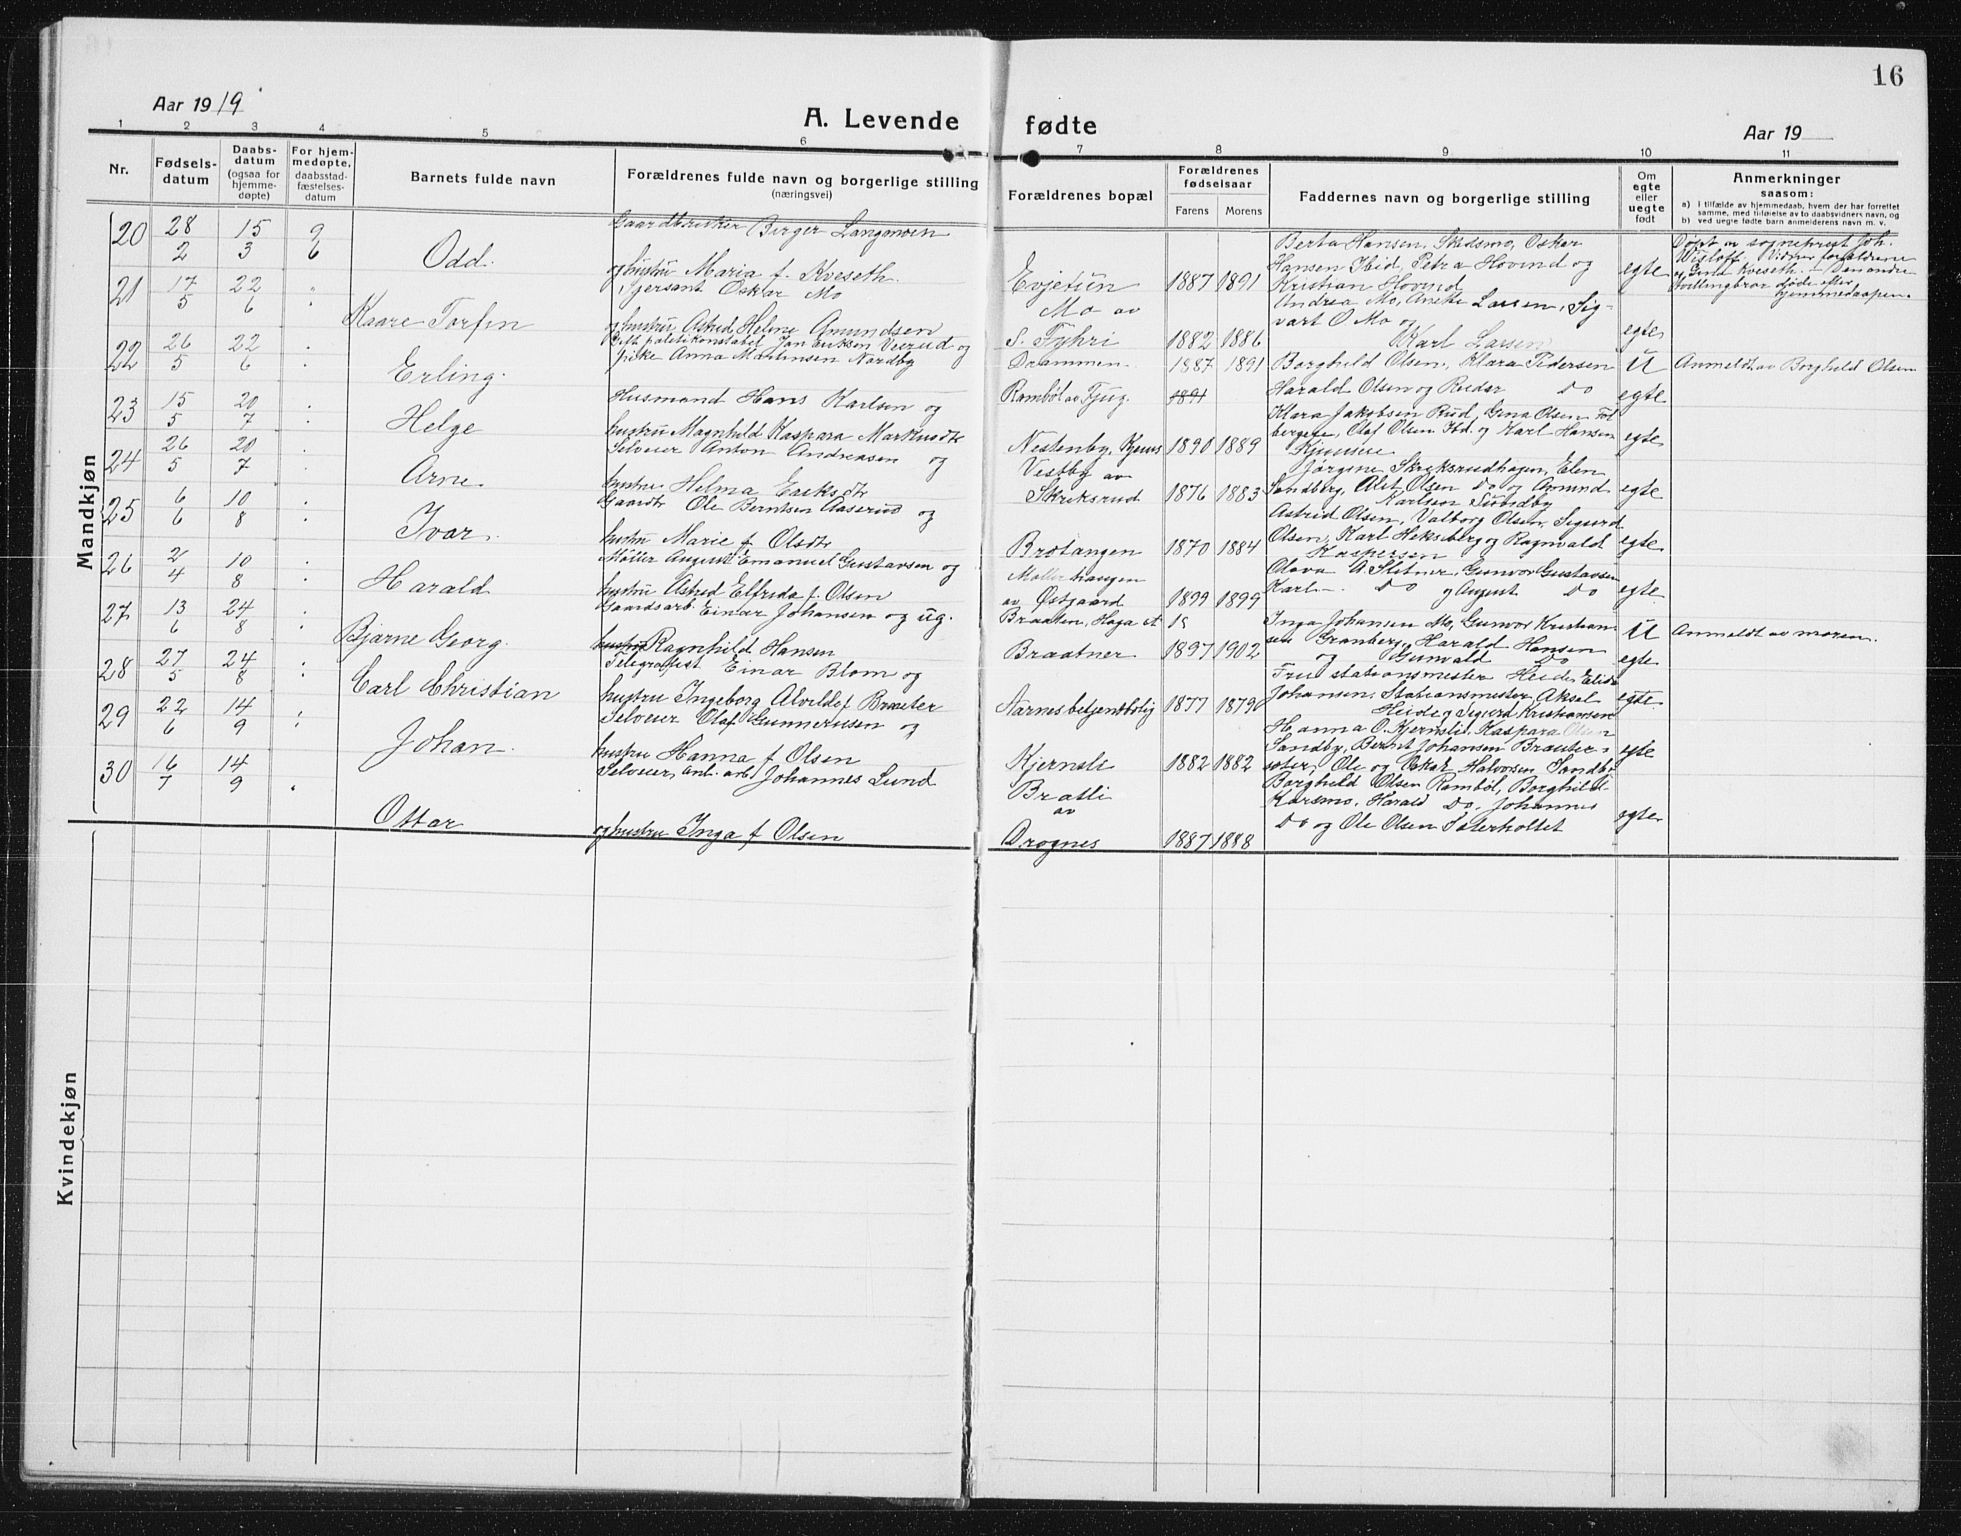 16
Aar 1919
A. Levende fødte
Aar 19
1 2 3 4 5 6 7 8 9 10 11
Nr.
Fødsels-datum
Daabs-datum (ogsaa for hjemme-døpte)
For hjem-medøpte, daabsstad-fæstelses-datum
Barnets fulde navn
Forældrenes fulde navn og borgerlige stilling (næringsvei)
Forældrenes bopæl
Forældrenes fødselsaar
Farens Morens
Faddernes navn og borgerlige stilling
Om egte eller uegte født
Anmerkninger
saasom:
a) i tilfælde av hjemmedaab, hvem der har forrettet samme, med tilføielse av to daabsvidners navn, og
b) ved uegte fødte barn anmelderens navn m. v.
Mandkjøn
20 28/2 15/3 9/6 Odd.
Gaardbruker Birger Langmoen
og hustru Maria f. Kveseth.
Evjetun 1887 1891
Berta Hansen, Skedsmo, Oskar
Hansen Ibid, Petra Hovind og
Kristian Hovind
egte
Døpt av sogneprest Joh.
Wisløff. Vidner forældrene
og Gina Kveseth. – Den andre
tvillingbror døde efter
hjemmedaapen.
21 17/5 22/6 " Kaare Torfin
Sjersant Oskar Mo
og hustru Astrid Helene Amundsen
Mo av
S. Fyhri 1882 1886
Andrea Mo, Anette Larsen, Sig-
vart O Mo og
Karl Larsen
egte
22 26/5 22/6 " Erling.
Gift politikonstabel Jan Eriksen Veerud og
pike Anna Martinsen Nordby
Drammen 1887 1891
Borghild Olsen, Klara Pedersen
Harald Olsen og Reidar Do
U
Anmeldt av Borghild Olsen
Rambøl av Fjug. 1891
egte
23 15/5 20/7 " Helge
Husmand Hans Karlsen og
hustru Magnhild Kaspara Markusdtr
Nestenby, Kjuus 1890 1889
Klara Jakobsen Rud, Gina Olsen Fol
bergeie, Olaf Olsen Ibd. og Karl Hansen
Kjuuseie
egte
24 26/5 20/7 " Arne
Selveier Anton Andreasen og
hustru Helma Eriksdtr
Vestby av
Skriksrud 1876 1883
Jørgine Skriksrudhagen, Elen
Sandberg, Alet Olsen Do og Amund
Karlsen Sundby
egte
25 6/6 10/8 " Ivar.
Gaardbr Ole Berntsen Aaserud og
hustru Marie f Olsdtr
Brotangen 1870 1884
Astrid Olsen, Valborg Olsen, Sigurd
Olsen, Karl Hekseberg og Ragnvald
Kaspersen
egte
26 2/4 10/8 " Harald
Møller August Emanuel Gustavsen og
hustru Astrid Elfrida f. Olsen
Møllerhaugen
av Østgaard 1899 1899
Olava A. Slitner, Gunvor Gustavsen
Karl – Do og August Do
egte
27 13/6 24/8 " Bjarne Georg.
Gaardsarb. Einar Johansen og ug.
hustru Ragnhild Hansen
Braaten, Haga A 18
Braatner 1897 1902
Inga Johansen Mo, Gunvor Kristian-
sen Granberg, Harald Hansen
og Gunvald Do
U
egte
Anmeldt av moren.
28 27/5 24/8 " Carl Christian
Telegrafist Einar Blom og
hustru Ingeborg Alvilde f Braater
Aarnes betjentbolig 1877 1879
Fru stationsmester Heide, Elida
Johansen, Stationsmester Aksel
Heide og Sigurd Kristiansen
egte
29 22/6 14/9 " Johan.
Selveier Olaf Gunnerusen og
hustru Hanna f Olsen
Kjernsli 1882 1882
Hanna O. Kjernsli, Kaspara Olsen
Sandby, Bernt Johansen Brauter-
sæter, Ole og Oskar Halvorsen Sandbø
egte
30 16/7 14/9 " Ottar
Selveier, anl. arb. Johannes Lund
og hustru Inga f Olsen
Bratli
av
Drognes 1887 1888
Borghild Olsen Rambøl, Borghild
Karsmo, Harald Do, Johannes
Do og Ole Olsen Sæterholtet
egte
Kvindekjøn